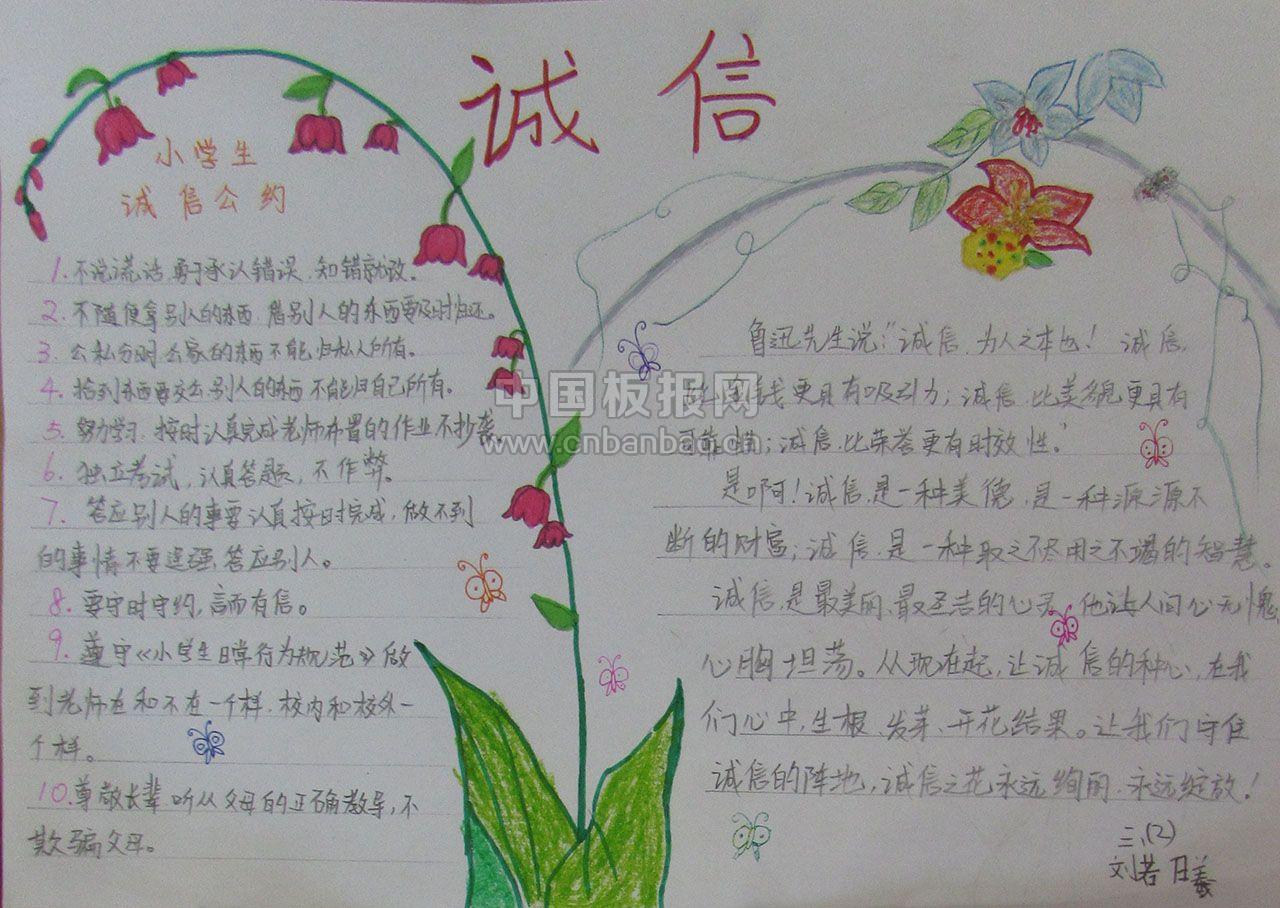 诚 信
小学生
诚信公约
1. 不说谎话,勇于承认错误,知错就改。
2. 不随便拿别人的东西,借别人的东西要及时归还。
3. 公私分明,公家的东西不能归私人所有。
4. 拾到东西要交公,别人的东西不能归自己所有。
5. 努力学习,按时认真完成老师布置的作业不抄袭。
6. 独立考试,认真答题,不作弊。
7. 答应别人的事要认真按时完成,做不到
的事情不要逞强答应别人。
8. 要守时守约,言而有信。
9. 遵守《小学生日常行为规范》做
到老师在和不在一个样,校内和校外一
个样。
10. 尊敬长辈 听从父母的正确教导,不
欺骗父母。
鲁迅先生说:“诚信,为人之本也! 诚信,
比金钱更具有吸引力;诚信,比美貌更具有
可靠性;诚信,比荣誉更有时效性。”
是啊!诚信,是一种美德,是一种源源不
断的财富;诚信,是一种取之不尽用之不竭的智慧。
诚信,是最美丽、最圣洁的心灵,他让人问心无愧
心胸坦荡。从现在起,让诚信的种心,在我
们心中,生根、发芽、开花结果。让我们守住
诚信的阵地,诚信之花永远绚丽,永远绽放!
三、(2)
刘若曦
中国板报网
www.cnbanbao.cn